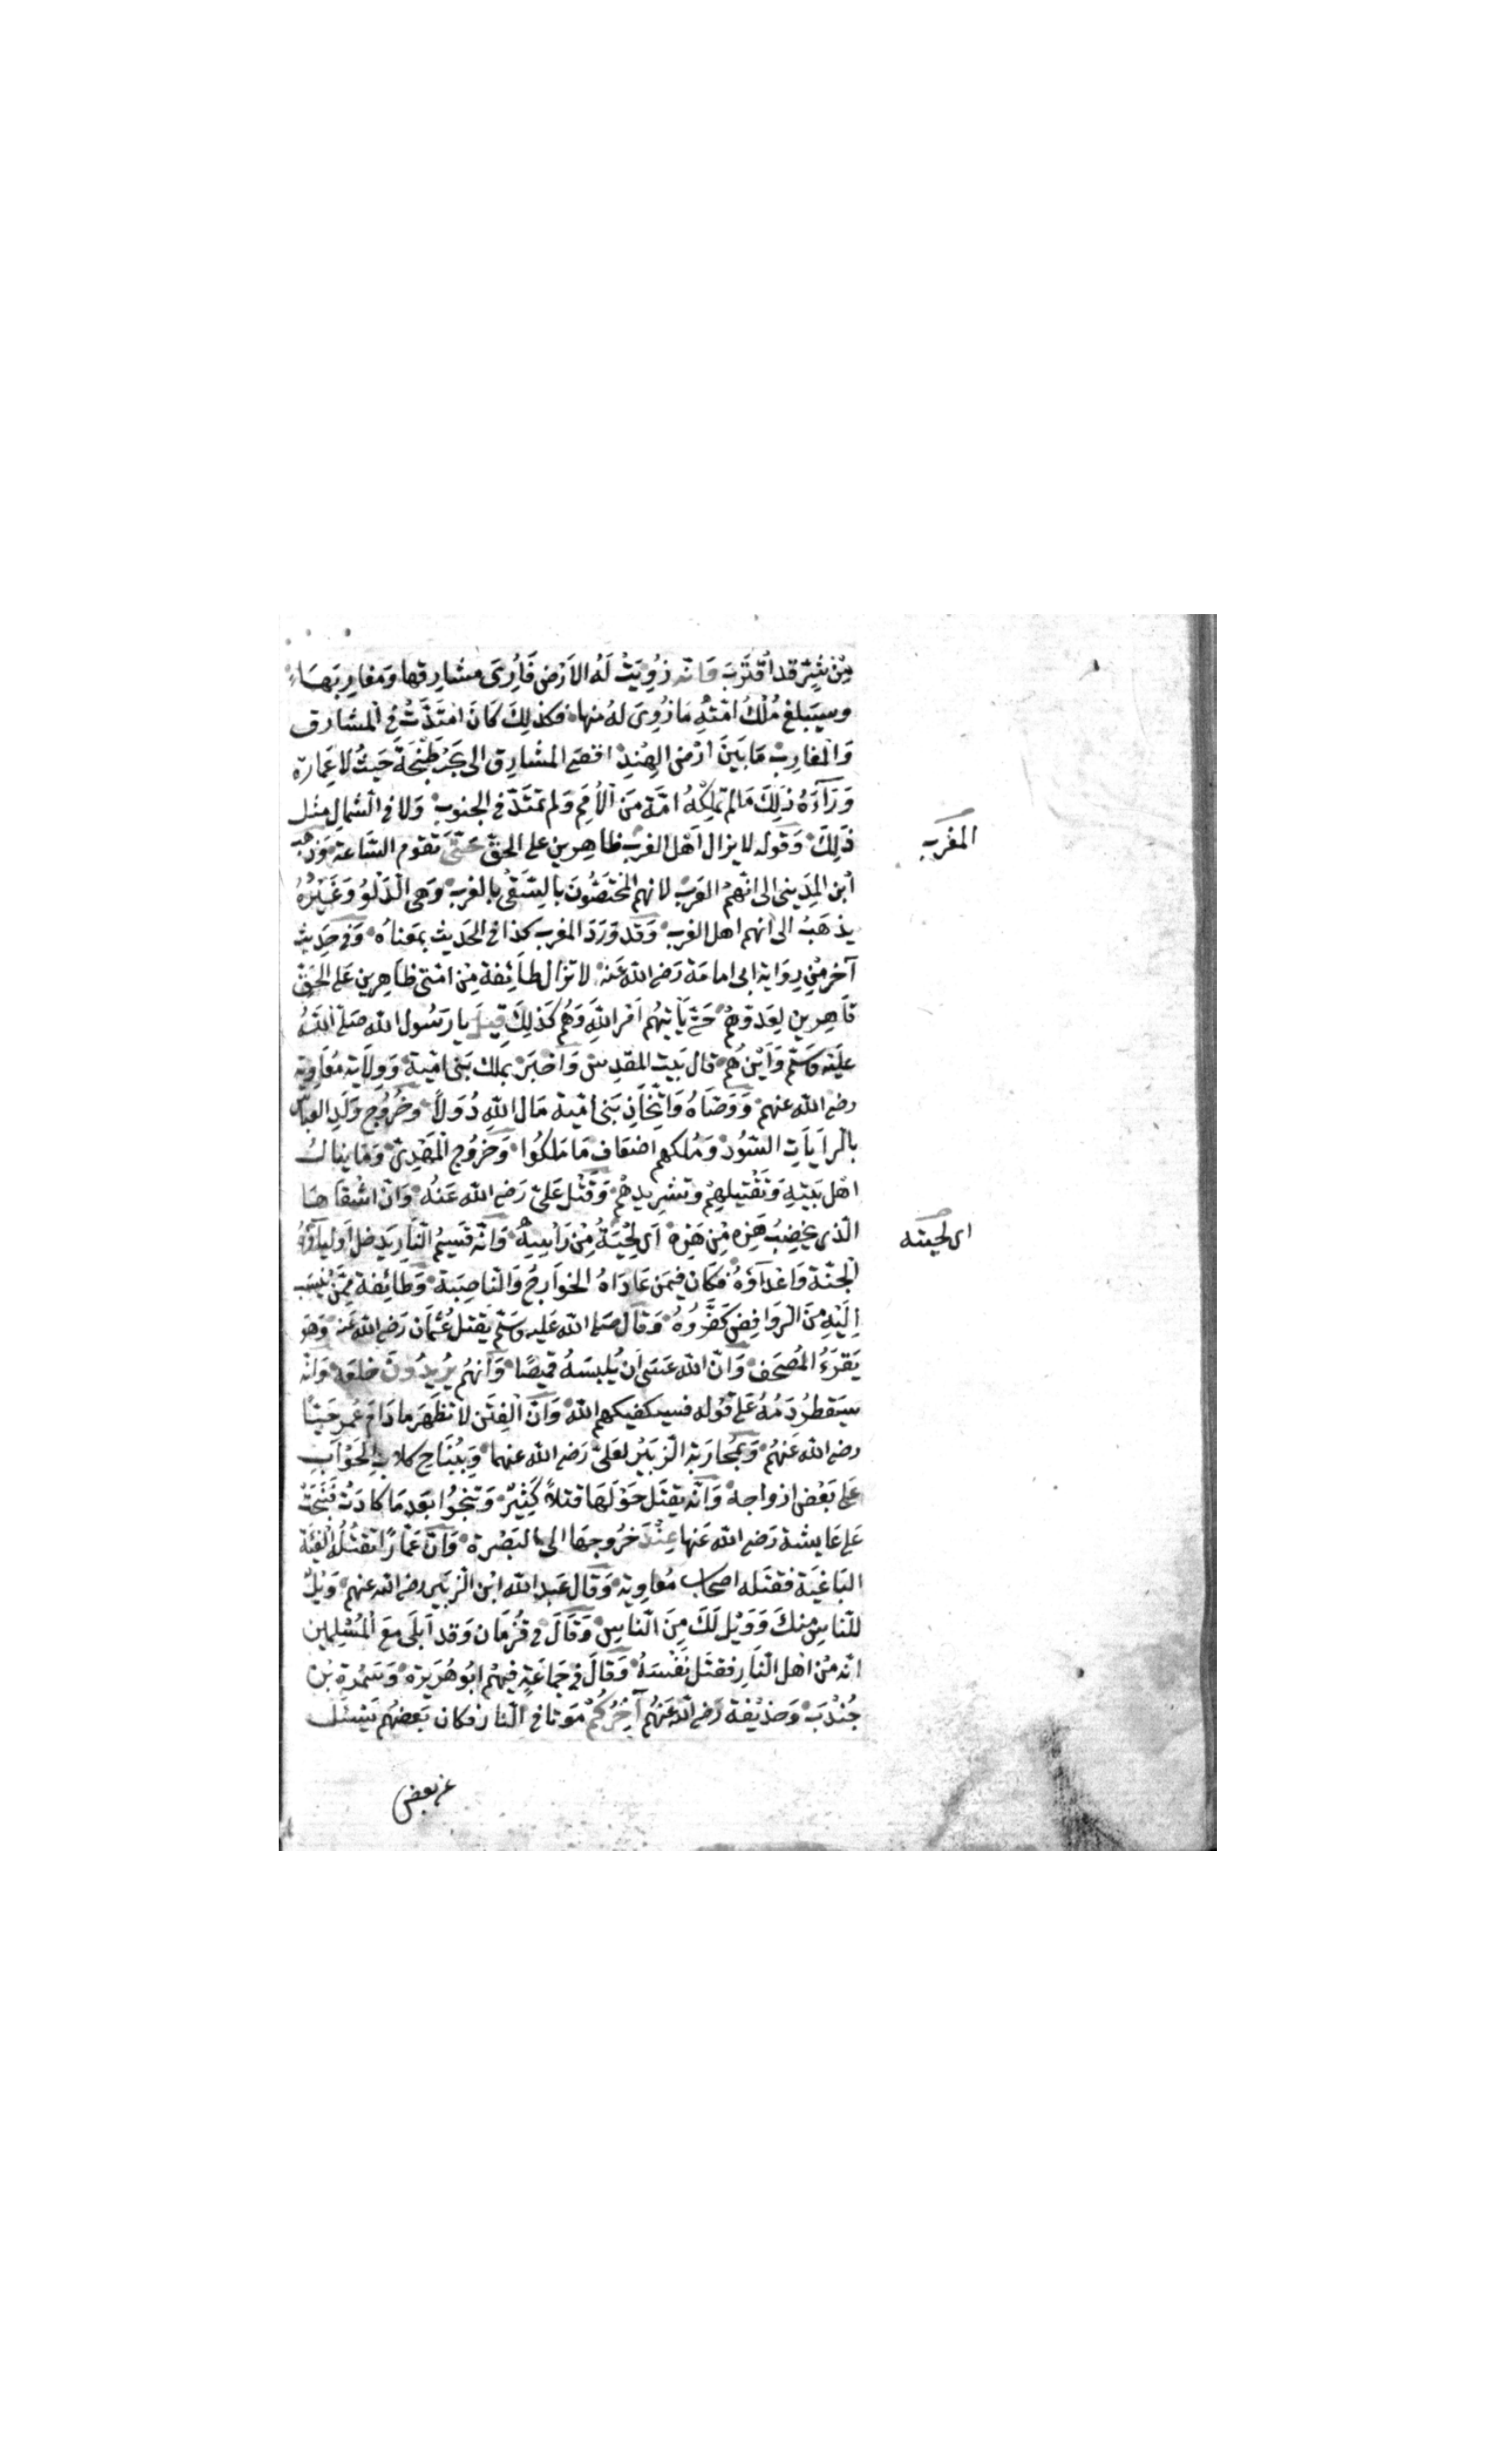 مِنْ شَرٍّ قد اقْتَرَبَ وَانه زُوِيَتْ لَهُ الاَرْضُ فَاُرِىَ مشارقها وَمغاربهَا
وسيَبلغ مُلْكُ امّتِهِ مَا زُوِىَ لهُ منها فكذلِكَ كانَ امتَدَّتْ فى المشارق
وَالمغارب مَا بَينَ ارْضِ الهِنْدِ اقصَى المشارق الى بَحْرِ طَنْجَةَ حَيثُ لا عِمَارة
وَرَآءَهُ ذٰلِكَ مَا لم تملِكْهُ امّة مِنَ الاُمَمِ وَلم تمتَدَّ فى الجنوبِ وَلا فى الشمالِ مِثل
ذٰلِكَ وَقوله لا يزال اَهْل الغرب ظاهِرين على الحقّ حتّى تقوم السّاعة وَذهبَ
ابن المدِينى الى انّهم العَرَبُ لانهم المختصُّونَ بالسّقى بالغرب وَهى الدّلوُ وَغَيرُهُ
يذهَبُ الى انهم اهل الغرب وَقد وَرَدَ المغرب كذا فى الحَديث بمَعناه وَفى حَدِيث
آخر مِنْ رِوَاية ابى امامَة رَضى الله عَنه لا تزال طائِفة مِن امّتى ظاهِرين عَلى الحَقّ
قاَهِرين لِعَدوّهم حَتّى يَأتِيهُم اَمر اللهِ وَهُم كَذلِكَ قِيلَ يا رَسُول الله صَلى اللهُ
عليه وَسَلّم وَاَيْنَ هُم قال بَيت المقدِس وَاخبَرَ بملك بَنى امَيّة وَوِلاَية مُعَاوية
رضى الله عنهم وَوَصّاهُ وَاتّخَاذِ بَنى امَيّة مَال اللهِ دُوَلاً وَخُرُوج وَلَدِ العبّاس
بالرّاَيَاتِ السّود وَمُلكهم اضعَاف مَا مَلكُوا وَخروُج المَهْدِىّ وَمَا ينال
اهْل بَيتِهِ وَتَقْتِيلِهِمْ وتشريدِهُم وَقَتْل عَلىّ رَضى الله عَنهُ وَانّ اشقاهَا
الّذى يخضِبُ هَذِه مِن هَذِه اَى لِحْيَتهُ مِن رَأسِهِ وَانّهُ قسِيمُ النّار يَدخل اَوليَآؤُهُ
الجنّة وَاعْدآؤهُ فكَان فيمن عَادَاهُ الخَوارجُ وَالناصِبَة وَطائِفة مِمَّن يُنسَب
اِلَيْهِ مِنَ الرّوَافِضِ كَفَّرُوهُ وَقال صَلى الله عَليه وسَلّم يقتل عُثمَان رَضى الله عَنه وَهو
يَقرَءُ المُصحَف وَانّ الله عَسَى اَن يُلبسَهُ قميصًا وَانهُم يُريدُونَ خلعَه وَانّه
سيَقطرُ دَمُهُ عَلى قوله فسيكفيكهم الله وَانّ الفِتَن لا تظهَر مادَامَ عُمر حَيًّا
رضى الله عَنهُم وَبمُحارَبَة الزّبَيْر لعَلىّ رَضى الله عنهما وَبِنُبَاح كلابِ الحَوْاَب
عَلى بَعْض ازواجه وَانّه يقتَل حَوْلَهَا قتلاً كَثِيرٌ وَتنجُوا بَعد مَا كادَتْ فَنَبَحَتْ
عَلى عَايشة رَضى الله عَنها عِنْدَ خرُوجهَا الى البَصْرة وَانّ عَمّارًا تقتُلهُ الفِئَة
البَاغيَة فقتَله اصحابُ مُعاوية وَقال عَبد الله ابْن الزّبَير رضى الله عنهم وَيْلٌ
للنّاس مِنكَ وَوَيْل لَكَ مِنَ النّاسِ وَقَالَ فى قُزْمَان وَقد اَبلَى مَعَ المُسْلِمين
انّه مِن اهْل النّار فقتَل نَفْسَهُ وَقالَ فى جَماعَةٍ فيهم ابُو هُرَيرة وَسَمُرة بْن
جُنْدَب وَحُذَيْفة رَضى الله عَنهُم آخِرُكُمْ مَوتا فى النّار فكان بَعضهُم يَسْئَل
عن بعض
المغرب
اى لحيته